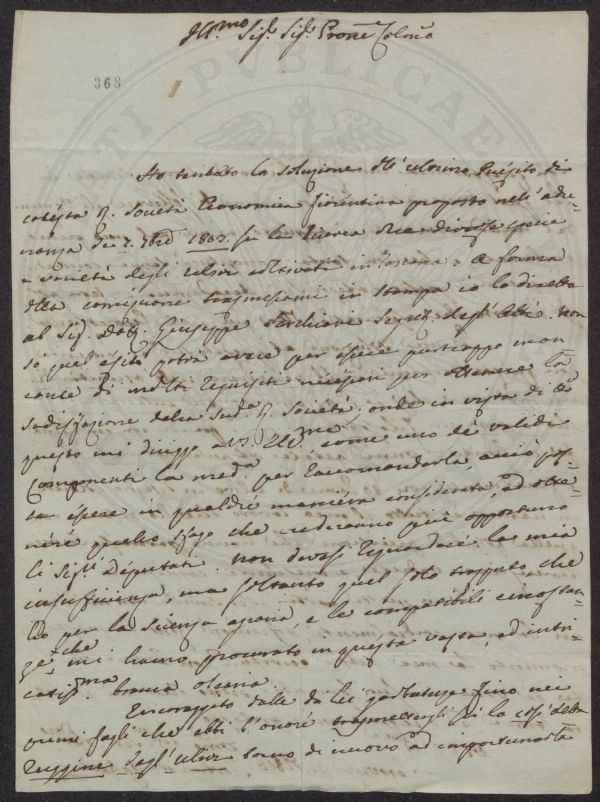 Ill.mo Sig.r Sig.r Prone Colmo
368
Ho tentato la soluzione del' ulteriore Quesito di
codesta R. Società Economica fiorentina proposto nell' adu-
nanza de 2. 7bre 1807. su la ricerca diverse specie
e varietà degli ulivi coltivati in Toscana. A forma
della comissione trasmessami in stampa io la diressi
al Sig. Dott. Giuseppe Segret. degli Atti. Non
sò qual esito potrà avere per essere purtroppo man
cante di molti requisiti necessari per ottenere la
sodisfazione della sud.a R. Società; onde in vista di
questo mi dirigo a V. S. Ill.ma, come uno de validi
Componenti la med.a per raccomandarla, acciò pos-
sa essere in qualche maniera considerata, ed otte-
nére quello sfogo che crederanno più opportuno
li Sig.ri Deputati. Non devesi riguardare la mia
insufficienza, ma soltanto quel solo trasporto che
ho per la scienza agraria, e le compatibili circostan-
ze, che mi hanno procurato in questa vasta, ed intri-
catiss.ma branca olearia.
Incoraggito dalle da Lei fino nei
primi fogli che ebbi l'onore trasmettergli sù la così detta
ruggine degl'ulivi torno di nuovo ad importunarla